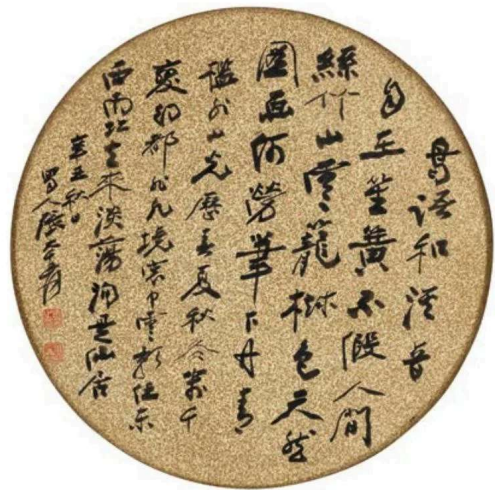 鳥語和溪音
自在笙簧不假人間
絲竹山雲籠樹色天然
圖画何勞筆下丹青
檻外山光歷春夏秋冬萬千
變幻都非凡境窗中雲影任東
西南北去來淡蕩洵是仙居
辛亥秋日
蜀人張大千爰